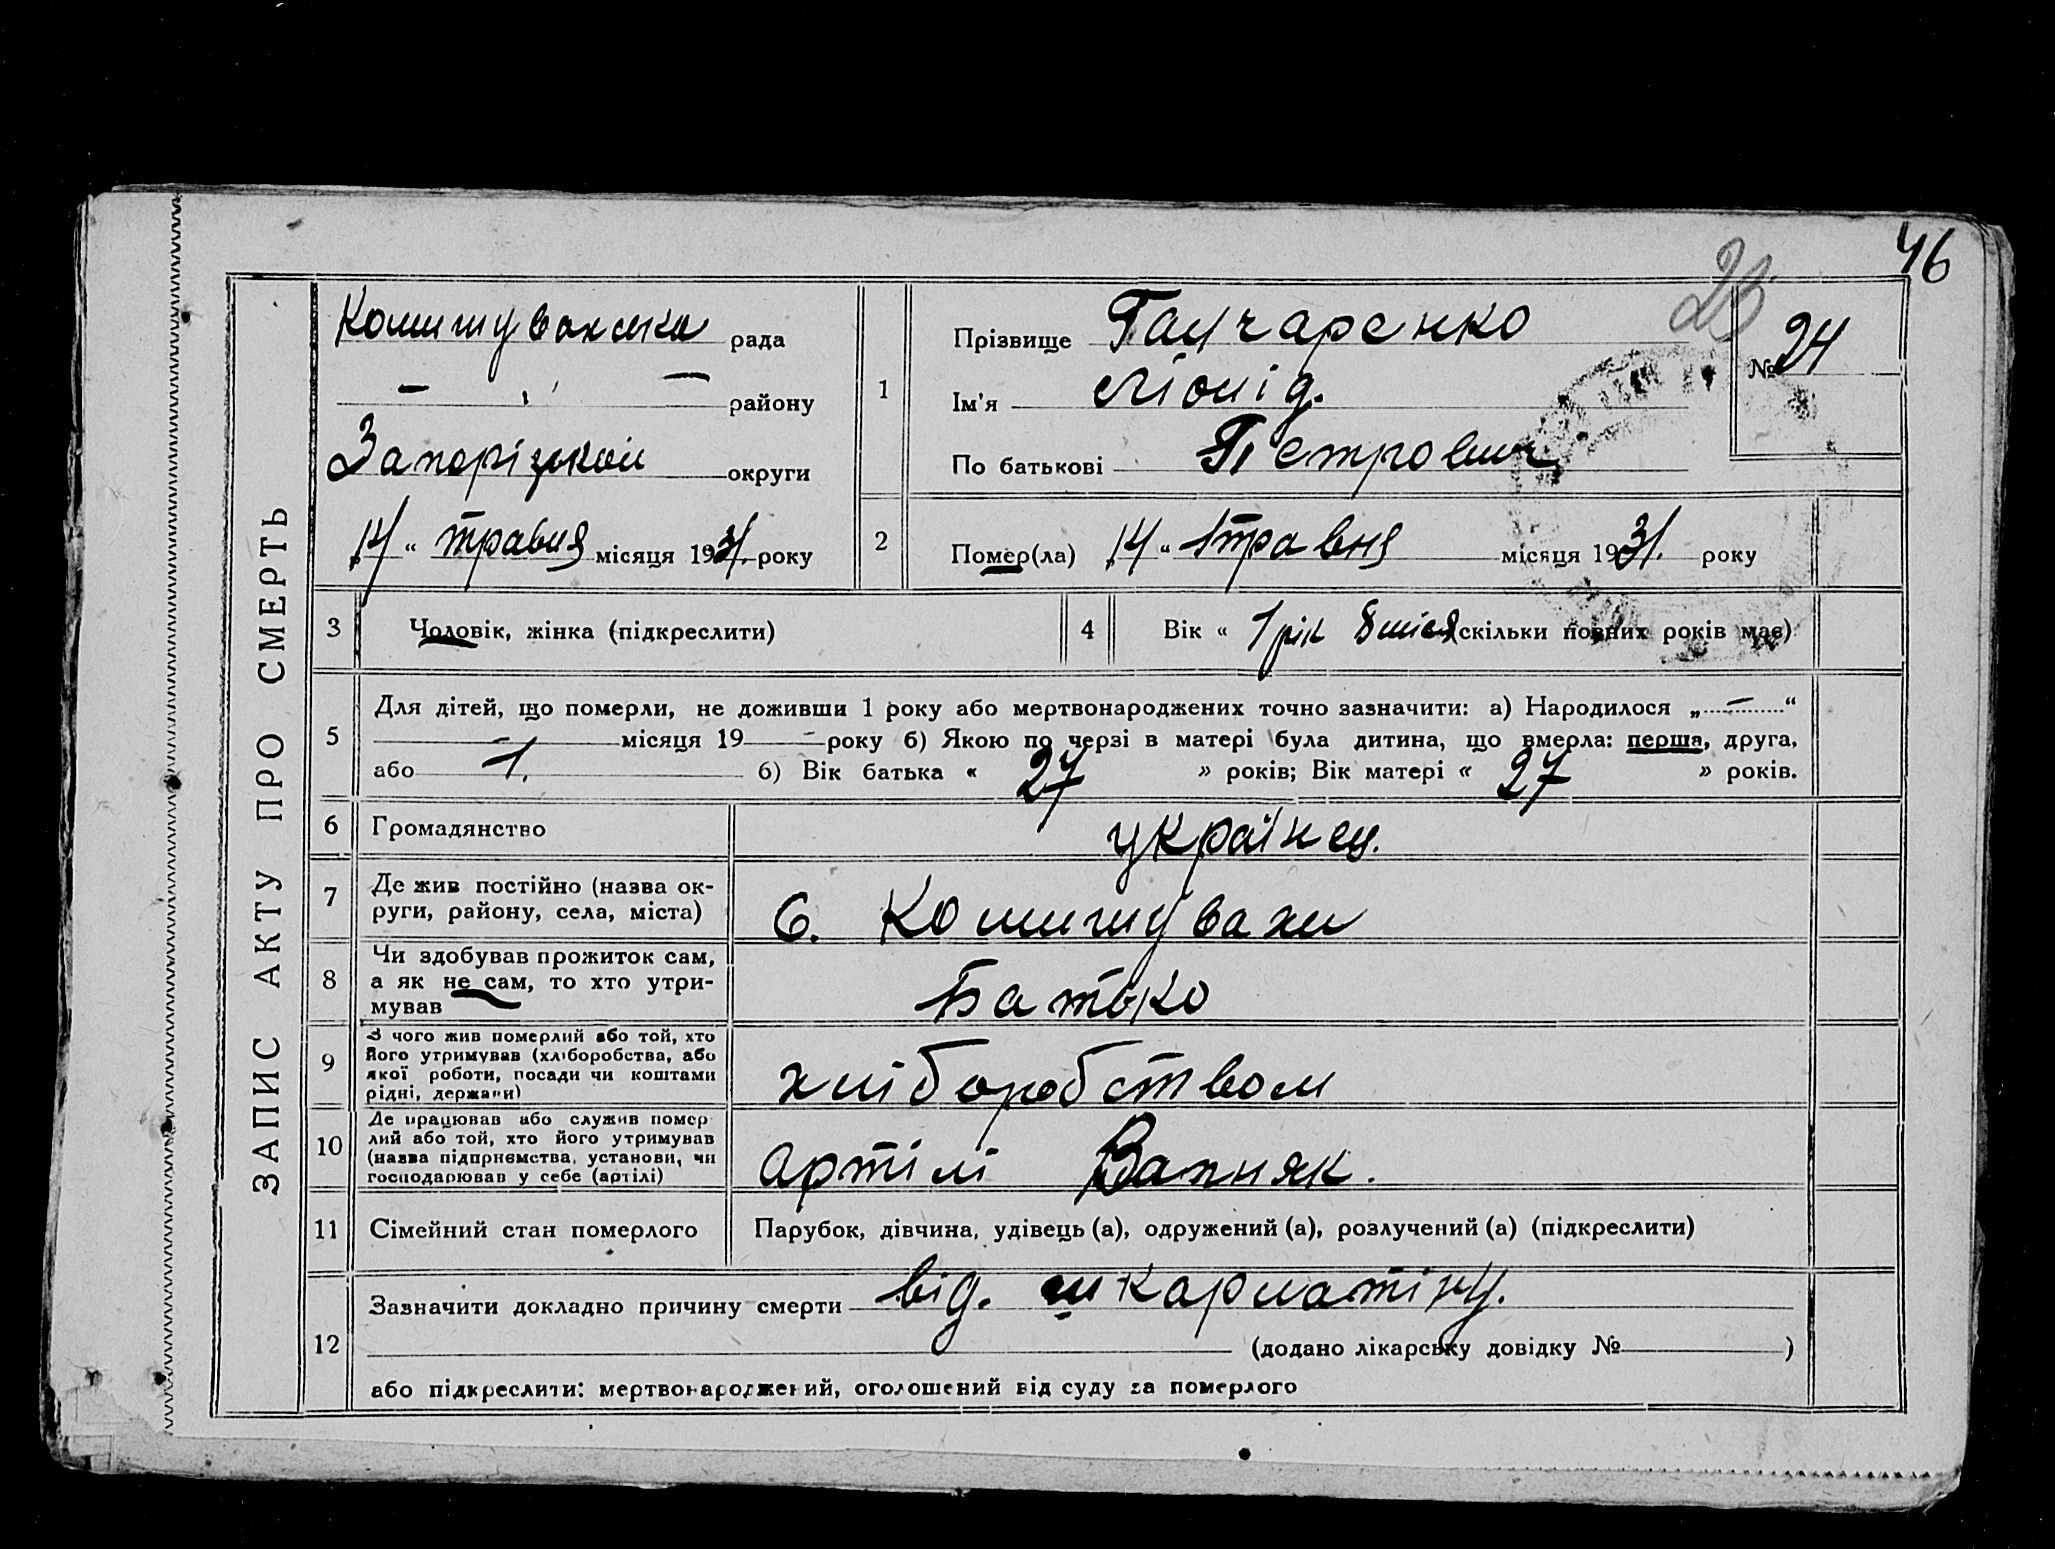 46
23
ЗАПИС АКТУ ПРО СМЕРТЬ
Комишуванська рада
— — району
Запоріцької округи
14 " травня місяця 1931. року
1
Прізвище Ганчаренко
Ім'я Ліонід.
По батькові Петрович
№ 24
2
Помер(ла) 14 " травня місяця 1931. року
3
Чоловік, жінка (підкреслити)
4
Вік « 1 рік 8 міся (скільки повних років має)
5
Для дітей, що померли, не доживши 1 року або мертвонароджених точно зазначити: а) Народилося „ — “
— місяця 19 — року б) Якою по черзі в матері була дитина, що вмерла: перша, друга,
або 1. б) Вік батька « 27 » років; Вік матері « 27 » років.
6
Громадянство
українец.
7
Де жив постійно (назва ок-
руги, району, села, міста)
С. Комишувахи
8
Чи здобував прожиток сам,
а як не сам, то хто утри-
мував
Батько
9
З чого жив померлий або той, хто
його утримував (хліборобства, або
якої роботи, посади чи коштами
рідні, держави)
хліборобством
10
Де працював або служив помер
лий або той, хто його утримував
(назва підприємства, установи, чи
господарював у себе (артілі)
артілі Вапняк.
11
Сімейний стан померлого
Парубок, дівчина, удівець (а), одружений (а), розлучений (а) (підкреслити)
12
Зазначити докладно причину смерти від. шкарлатіну.
(додано лікарську довідку № )
або підкреслити: мертвонароджений, оголошений від суду за померлого